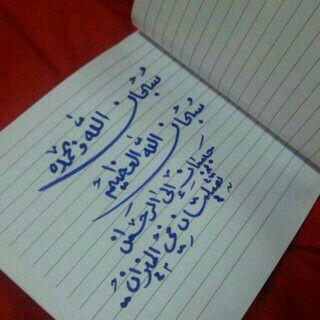 سبحان الله وبحمده
سبحان الله العظيم
حبيبتان الى الرحمن
ثقيلتان في الميزان